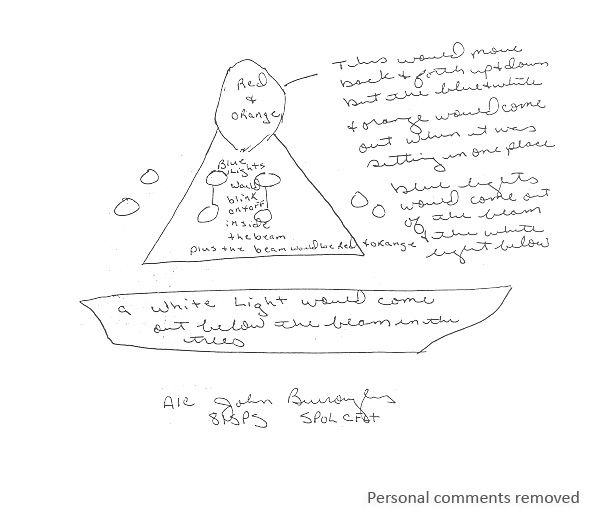 Red
&
orange
This would move
back & forth up & down
but the blue & white
& orange would come
out when it was
sitting in one place
Blue
Lights
would
blink
on & off
inside
the beam
plus the beam would be Red & orange
blue lights
would come out
of the beam
& the white
light below
a white Light would come
out below the beam in the
trees
A1C John Burroughs
81SPS
Personal comments removed